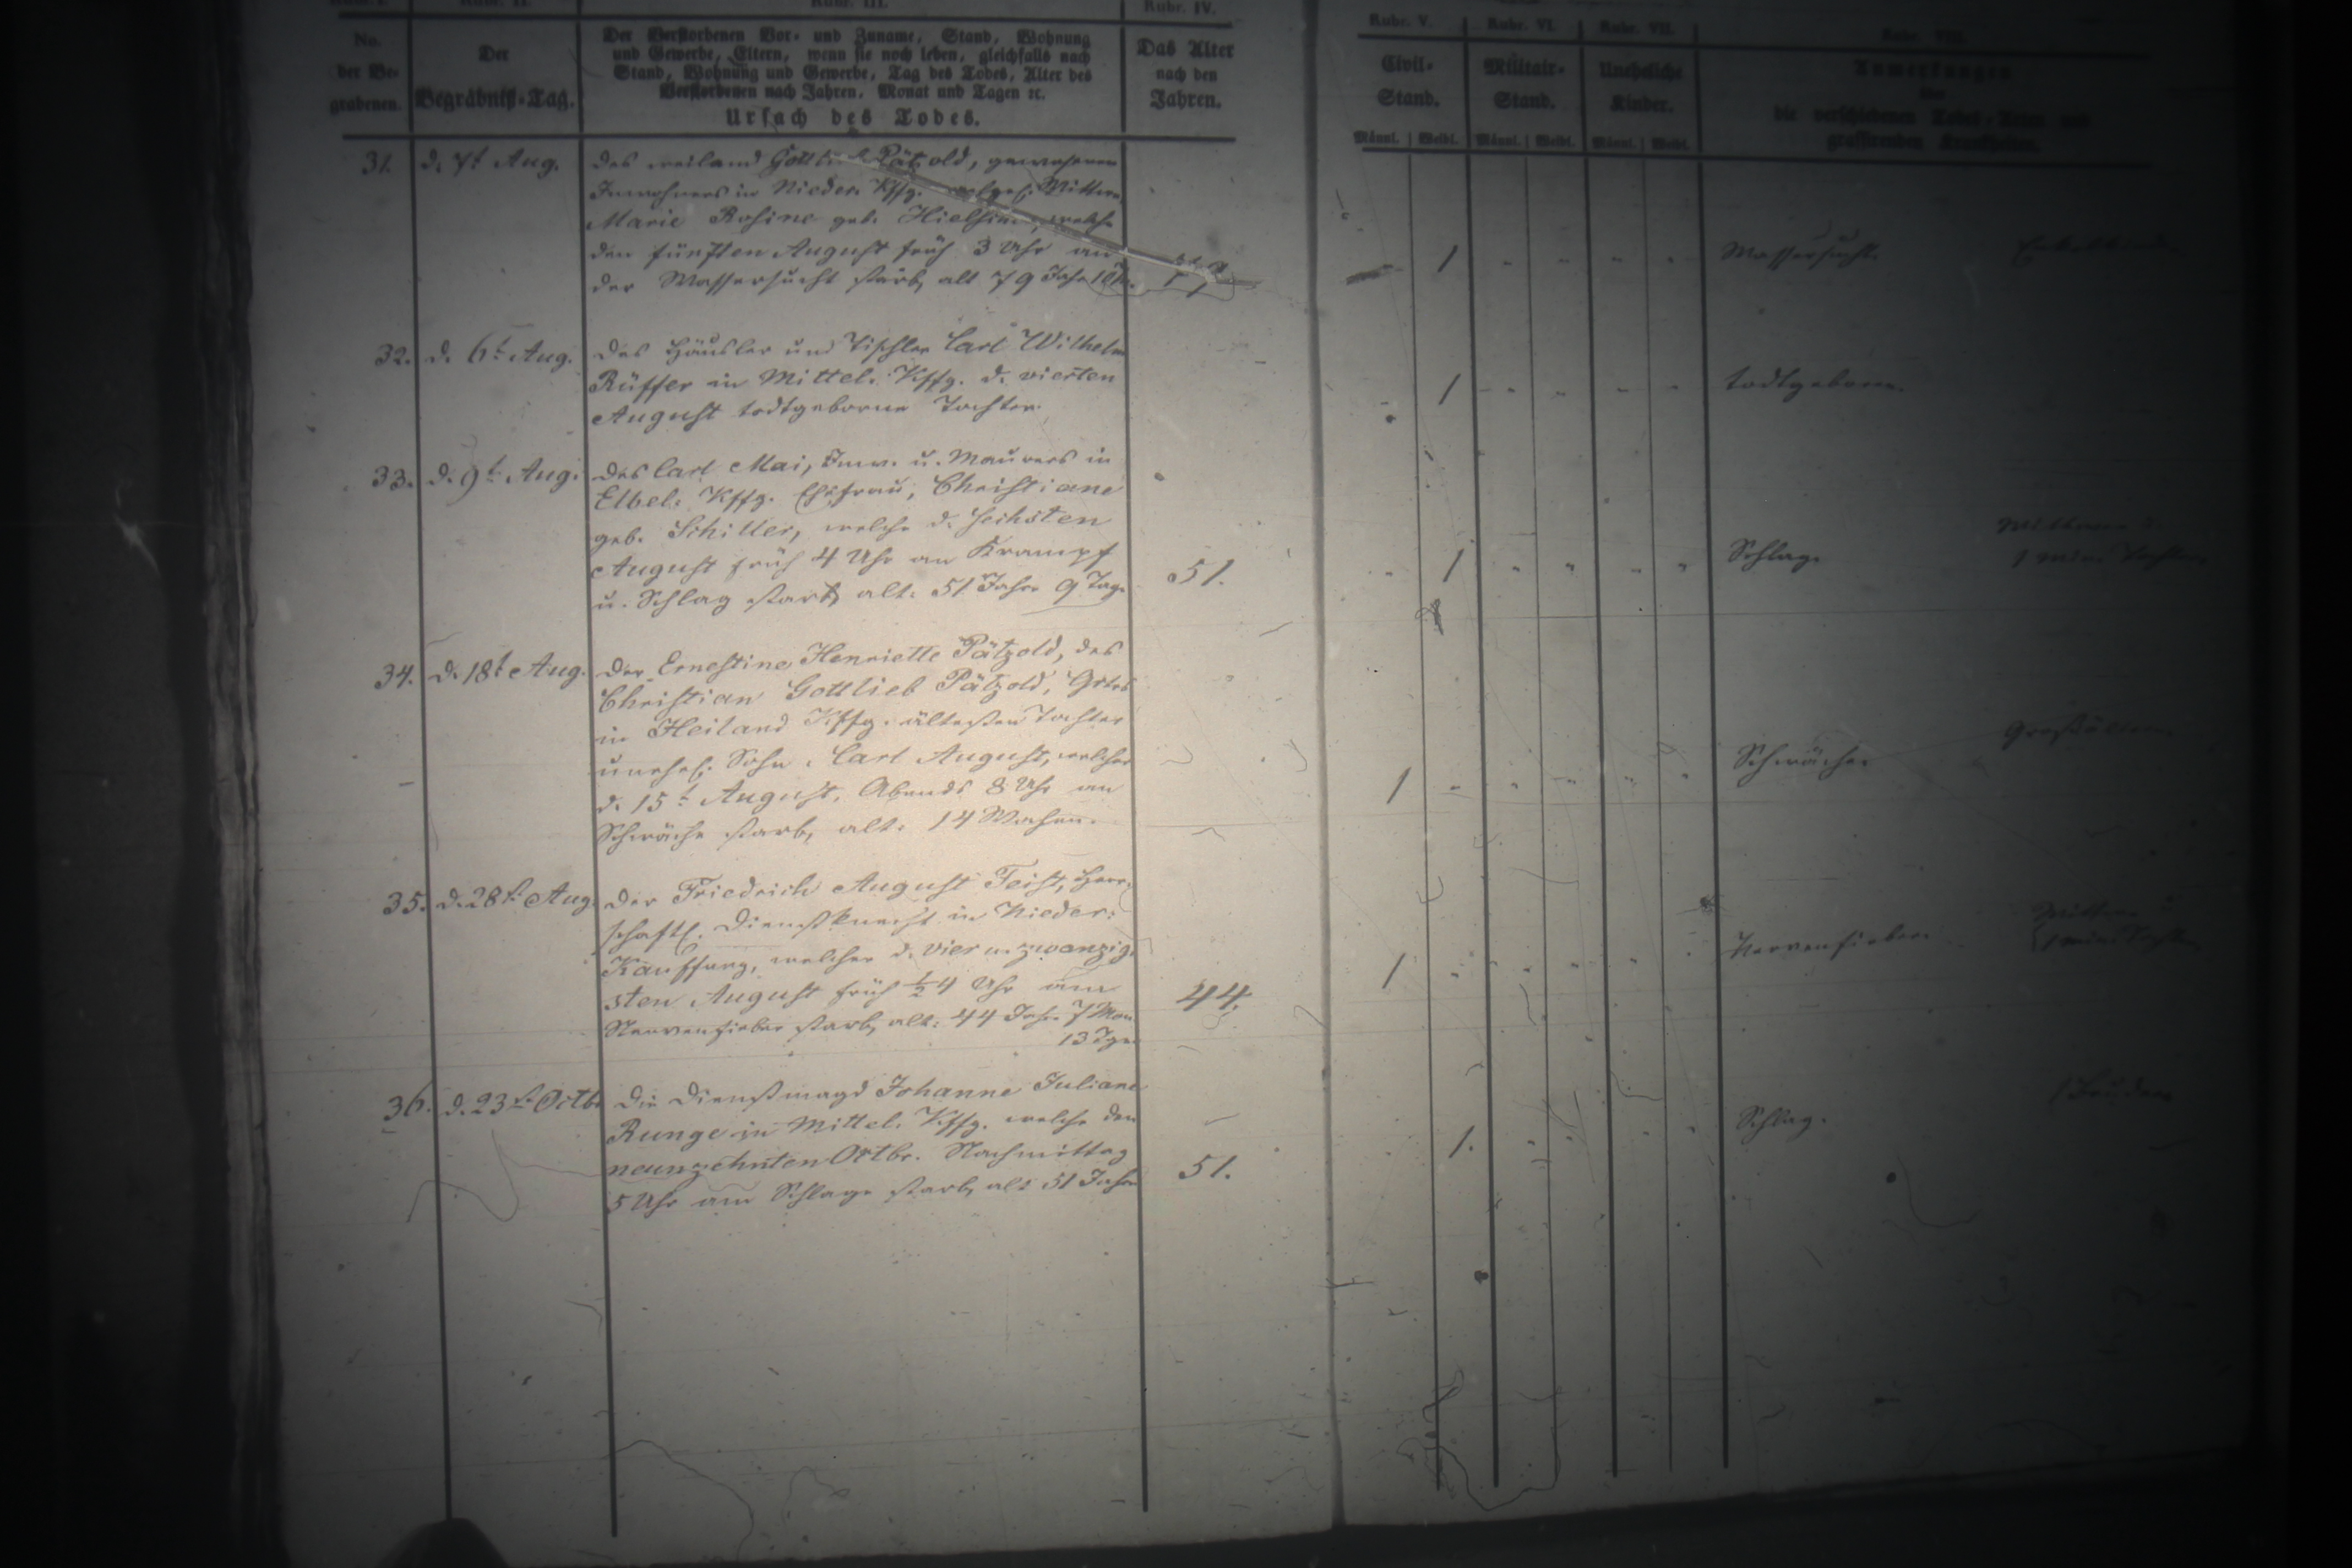 Rubr. III.
Rubr. IV.
No.
der Be-
grabenen.
Der
Begräbniß-Tag.
Der Verstorbenen Vor- und Zuname, Stand, Wohnung
und Gewerbe, Eltern, wenn sie noch leben, gleichfalls nach
Stand, Wohnung und Gewerbe, Tag des Todes, Alter des
Verstorbenen nach Jahren, Monat und Tagen ec.
Ursach des Todes.
Das Alter
nach den
Jahren.
Rubr. V.
Civil-
Stand.
Männl. Weibl.
Rubr. VI.
Militair-
Stand.
Männl. Weibl.
Rubr. VII.
Uneheliche
Kinder.
Männl. Weibl.
Rubr. VIII.
Anmerkungen
die verschiedenen Todes-Arten und
grassirenden Krankheiten.
31. d. 7t Aug.
des weiland Gottlieb Pätzold, gewesenen
Inwohners in Nieder. Kffg. Wittwe
Marie Rosine geb. welche
den fünften August früh 3 Uhr an
der Wassersucht starb, alt 79 Jahr
79
1
Wassersucht.
32. d. 6t Aug.
des Häusler und Tischler Carl Wilhelm
Rüffer in Mittel. Kffg. d. vierten
August todtgeborne Tochter.
1
todtgeboren.
33. d. 9t Aug.
des Carl Mai, Inw. u. Maurers in
Elbel. Kffg. Ehefrau, Christiane
geb. Schiller, welche d. sechsten
August früh 4 Uhr an Krampf
u. Schlag starb, alt: 51 Jahr 9 Tage
51.
1
Schlag.
Wittwer u.
1 min. Tochter.
34. d. 18t Aug.
Der Ernestine Henriette Pätzold, des
Christian Gottlieb Pätzold, Grtrs
in Heiland Kffg. ältesten Tochter
unehel. Sohn Carl August, welcher
d. 15t August, Abends 8 Uhr an
Schwäche starb, alt: 14 Wochen.
1
Schwäche.
Großältern.
35. d. 28t Aug.
Der Friedrich August Feist, herr-
schaftl. Dienstknecht in Nieder-
Kauffung, welcher d. vier u. zwanzig-
sten August früh ½ 4 Uhr am
Nervenfieber starb, alt: 44 Jahr 7 Mon.
13 Tge.
44.
1
Nervenfieber.
Wittwe u.
1 min. Tochter
36. d. 23t Octb.
Die Dienstmagd Johanne Juliane
Runge in Mittel. Kffg. welche den
neunzehnten Octbr. Nachmittag
5 Uhr am Schlage starb, alt 51 Jahr
51.
1.
Schlag.
1 Bruder.